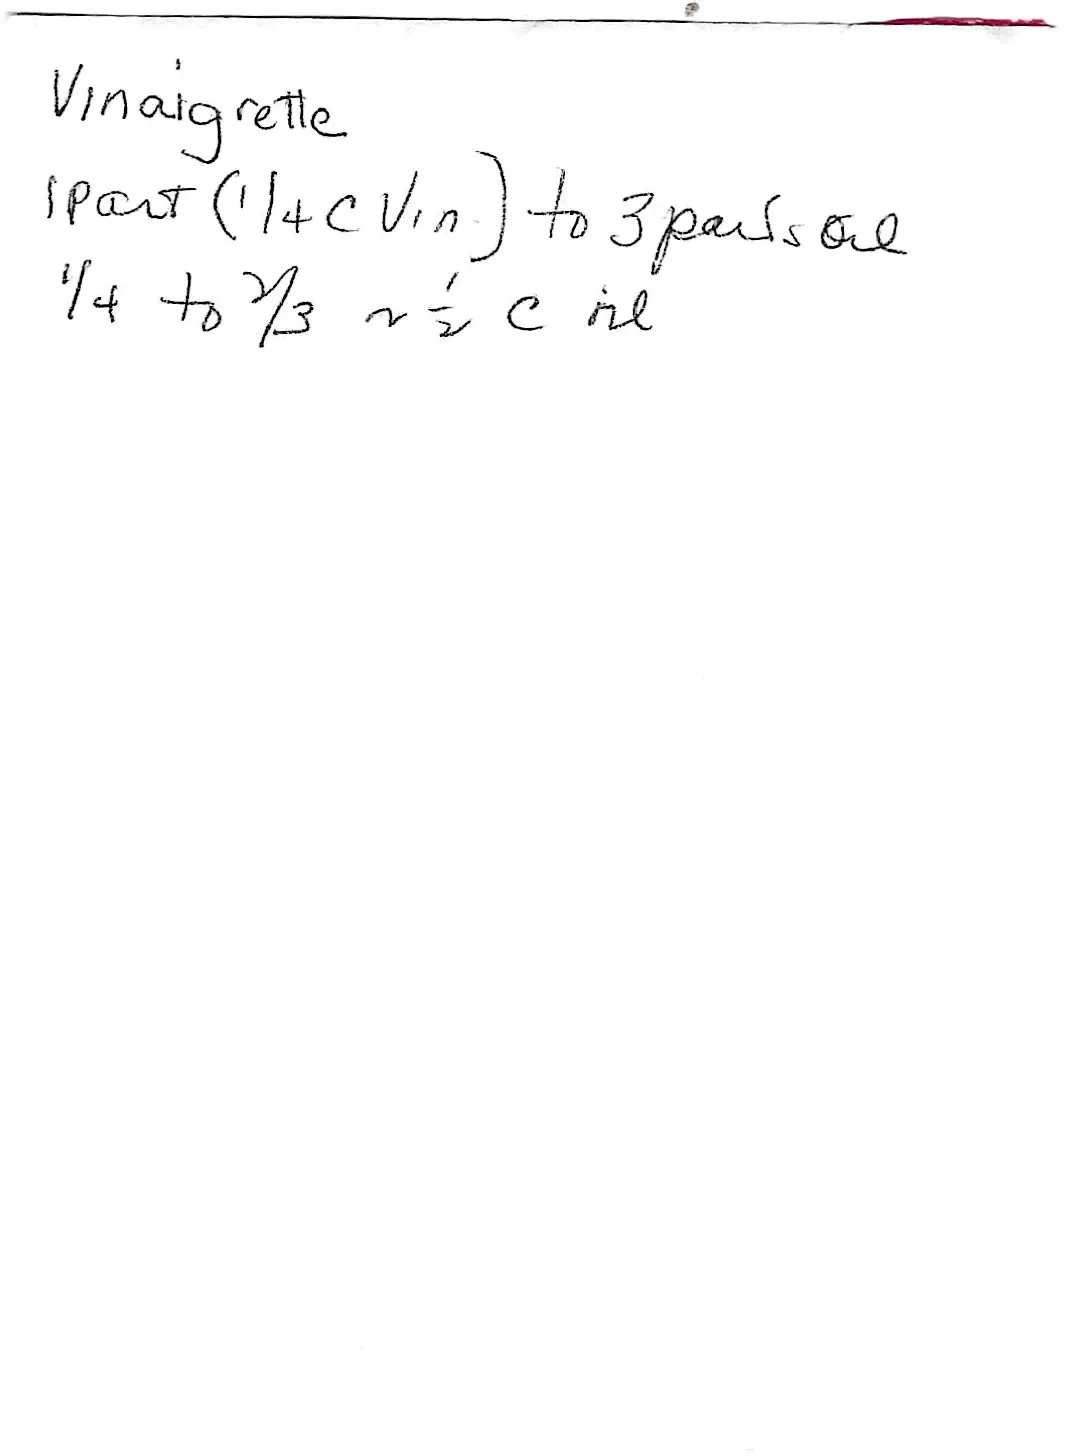 Vinaigrette
1 part (1/4 c Vin.) to 3 parts oil
1/4 to 2/3 ~ 1/2 c oil